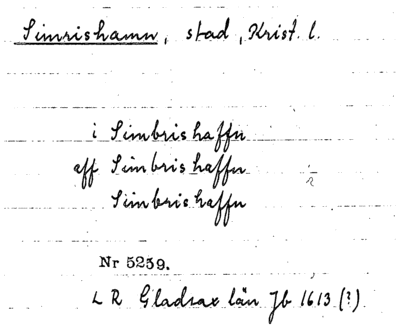 Simrishamn, stad, Krist. l.
i Simbrishaffn
aff Simbrishaffn
Simbrishaffn
Nr 5259.
L R Gladsax län Jb 1613 (?)